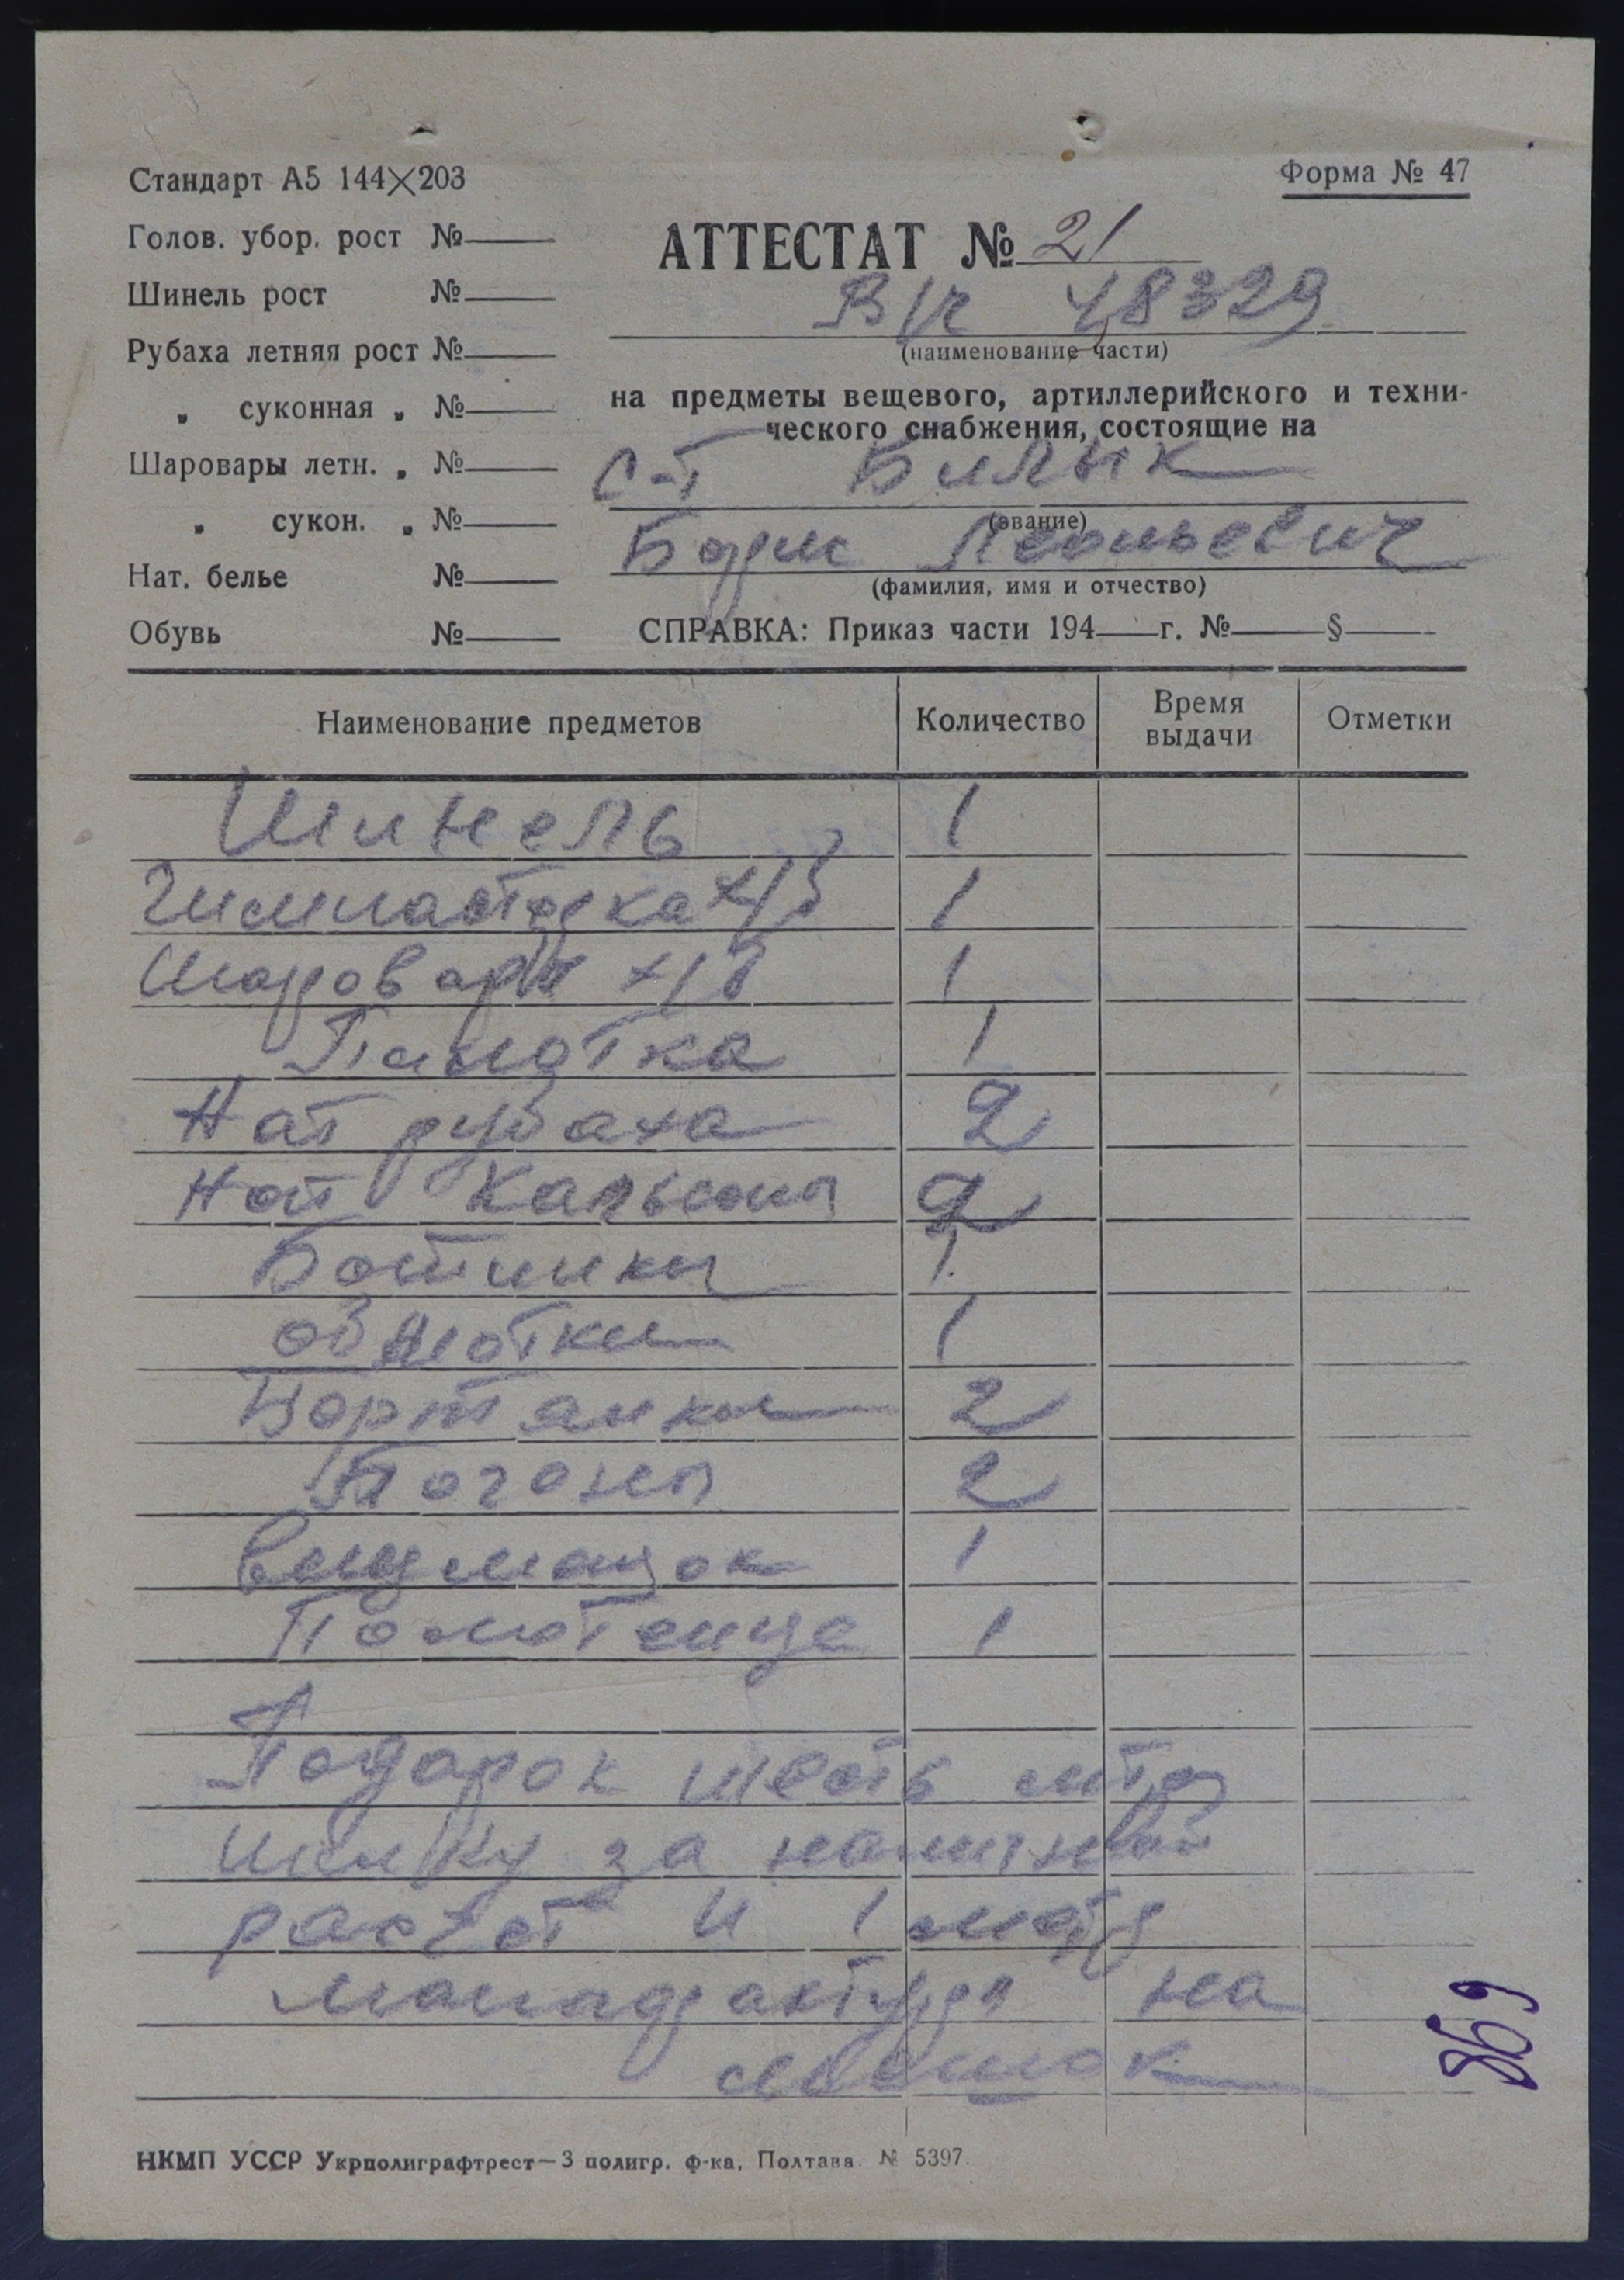 Стандарт А5 144×203
Форма № 47
Голов. убор. рост №
Шинель рост №
Рубаха летняя рост №
„ суконная „ №
Шаровары летн. „ №
„ сукон. „ №
Нат. белье №
Обувь №
АТТЕСТАТ № 21
В/ч 48329
(наименование части)
на предметы вещевого, артиллерийского и техни-
ческого снабжения, состоящие на
С-т Билык
(звание)
Борис
(фамилия, имя и отчество)
СПРАВКА: Приказ части 194 г. № §
Наименование предметов Количество Время выдачи Отметки
Шинель 1
Гимнастерка х/б 1
Шаровары х/б 1
Пилотка 1
Нат рубаха 2
Нат Кальсоны 2
Ботинки 1
обмотки 1
Портянки 2
Погоны 2
вещмашок 1
Полотенце 1
Подарок шесть мтр
за наличный
расчет и 1 мотр
на
мешок
369
НКМП УССР Укрполиграфтрест—3 полигр. ф-ка, Полтава. № 5397.